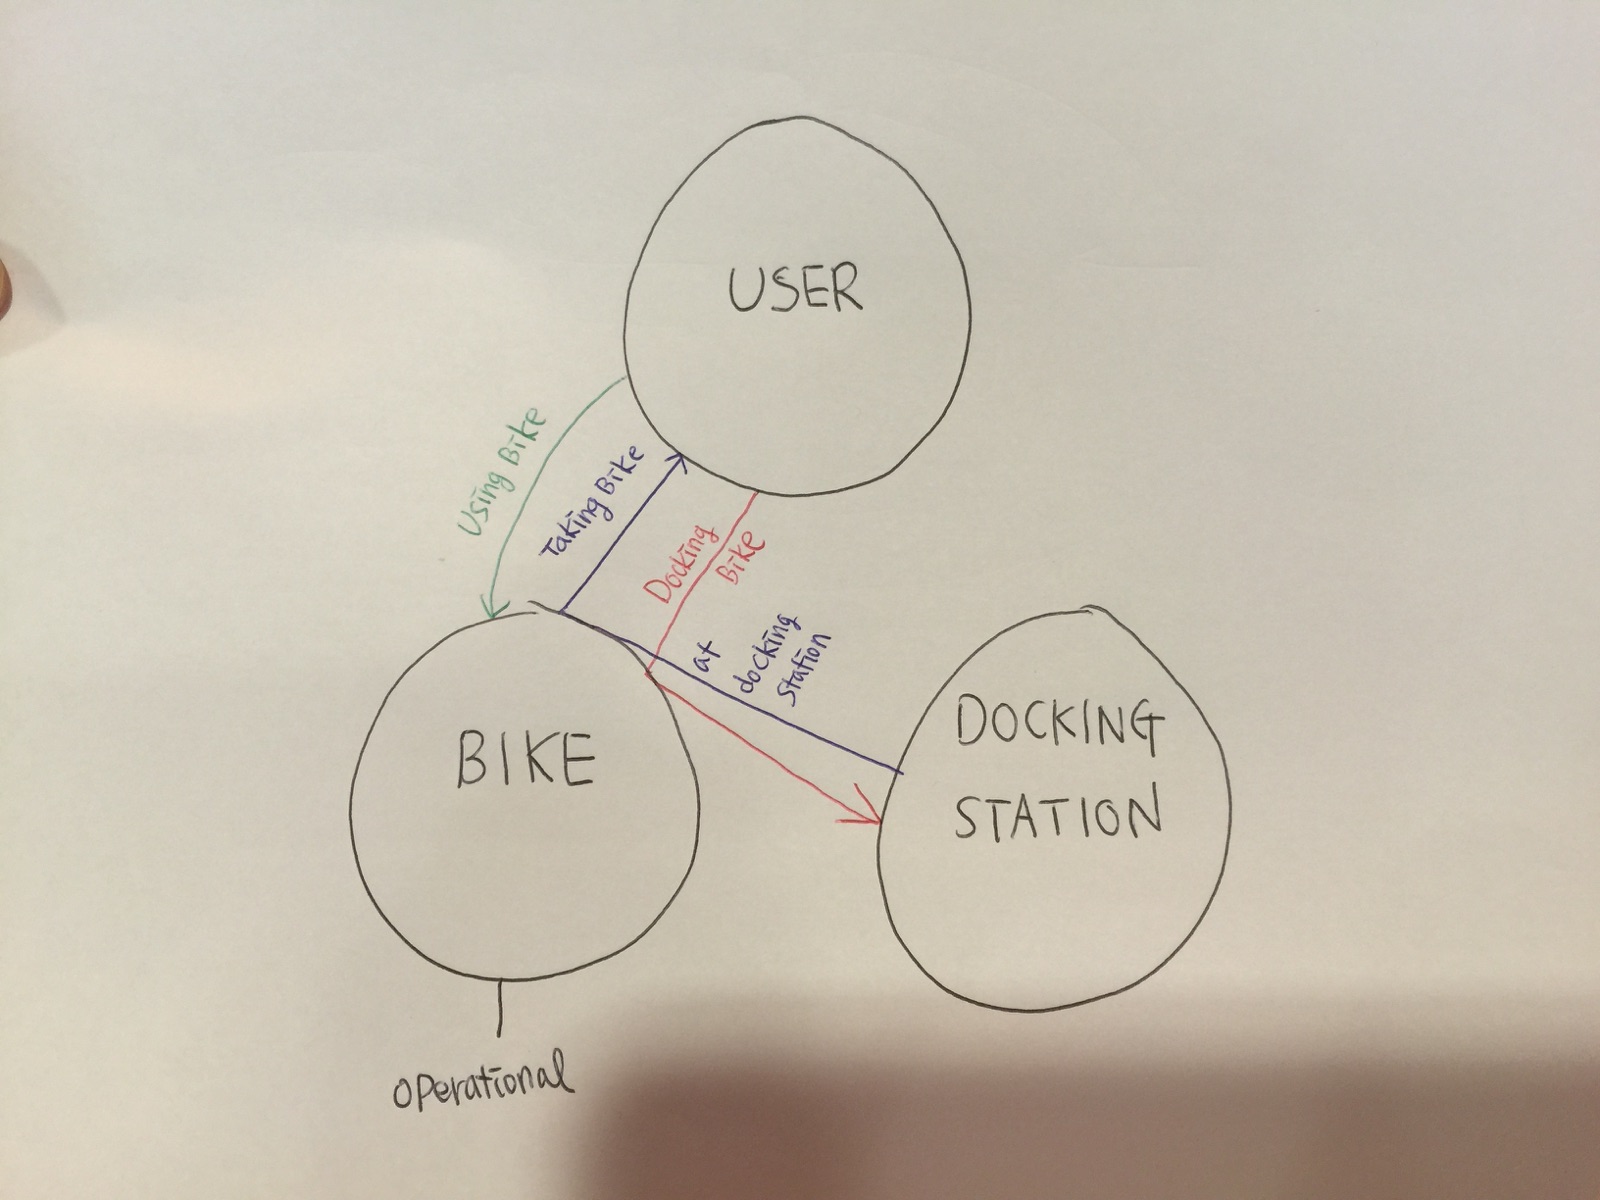 USER
Using Bike
Taking Bike
Docking
Bike
at
docking
Station
BIKE
DOCKING
STATION
operational